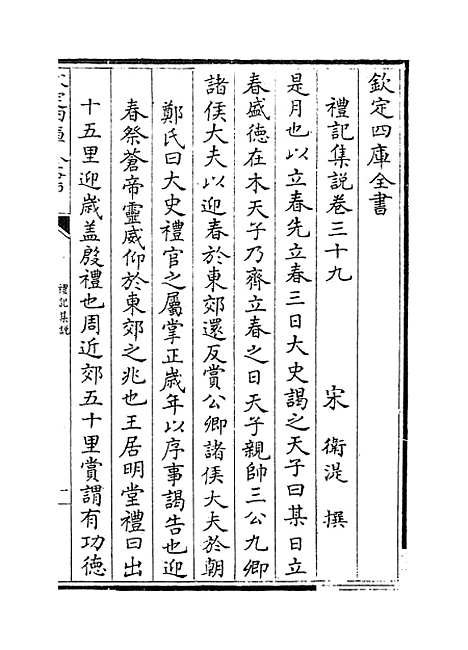 欽定四庫全書
禮記集説卷三十九　宋　衛湜　撰
是月也以立春先立春三日大史謁之天子曰某日立
春盛德在木天子乃齊立春之日天子親帥三公九卿
諸侯大夫以迎春於東郊還反賞公卿諸侯大夫於朝
鄭氏曰大史禮官之屬掌正歲年以序事謁告也迎
春祭蒼帝靈威仰於東郊之兆也王居明堂禮曰出
十五里迎歲盖殷禮也周近郊五十里賞謂有功德
禮記集說